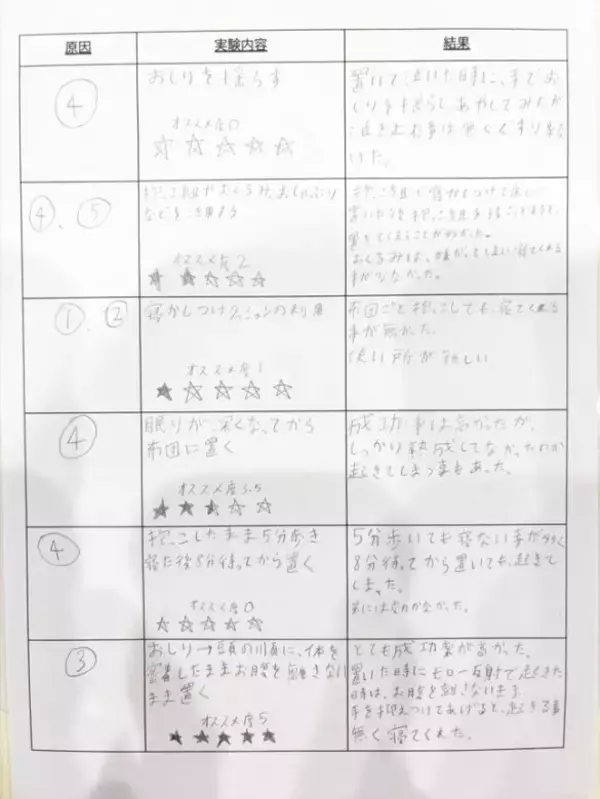 原因
実験内容
結果
④
おしりを揺らす
オススメ度0
☆☆☆☆☆
置いて泣いた時に、手でお
しりを揺らしあやしてみたが
泣き止む事は無くぐずり続
けた。
④、⑤
抱っこ紐やおくるみ、おしゃぶり
などを使用する
オススメ度2
★★☆☆☆
抱っこ紐で寝かしつけて
置いた後抱っこ紐を
起きてしまうことが多かった。
おくるみは、嫌がってしまい寝てくれる
事が少なかった。
①、②
寝かしつけクッションの利用
オススメ度1
★☆☆☆☆
布団ごと抱っこしても、寝てくれる
事が無かった。
使い所が難しい
④
眠りが、深くなってから
布団に置く
オススメ度3.5
成功率は高かったが、
しっかり熟成してなかったのか
起きてしまう事もあった。
④
抱っこしたまま5分歩き
寝た後8分待ってから置く
オススメ度0
☆☆☆☆☆
5分歩いても寝ない事が多く
8分待ってから置いても、起きて
しまった。
気にはならなかった。
③
おしり→頭の順に、体を
密着したままお腹を離さない
まま置く
オススメ度5
★★★★★
とても成功率が高かった。
置いた時にモロー反射で起きた
時は、お腹を離さないまま、
手を抑えつけてあげると、起きる事
無く寝てくれた。